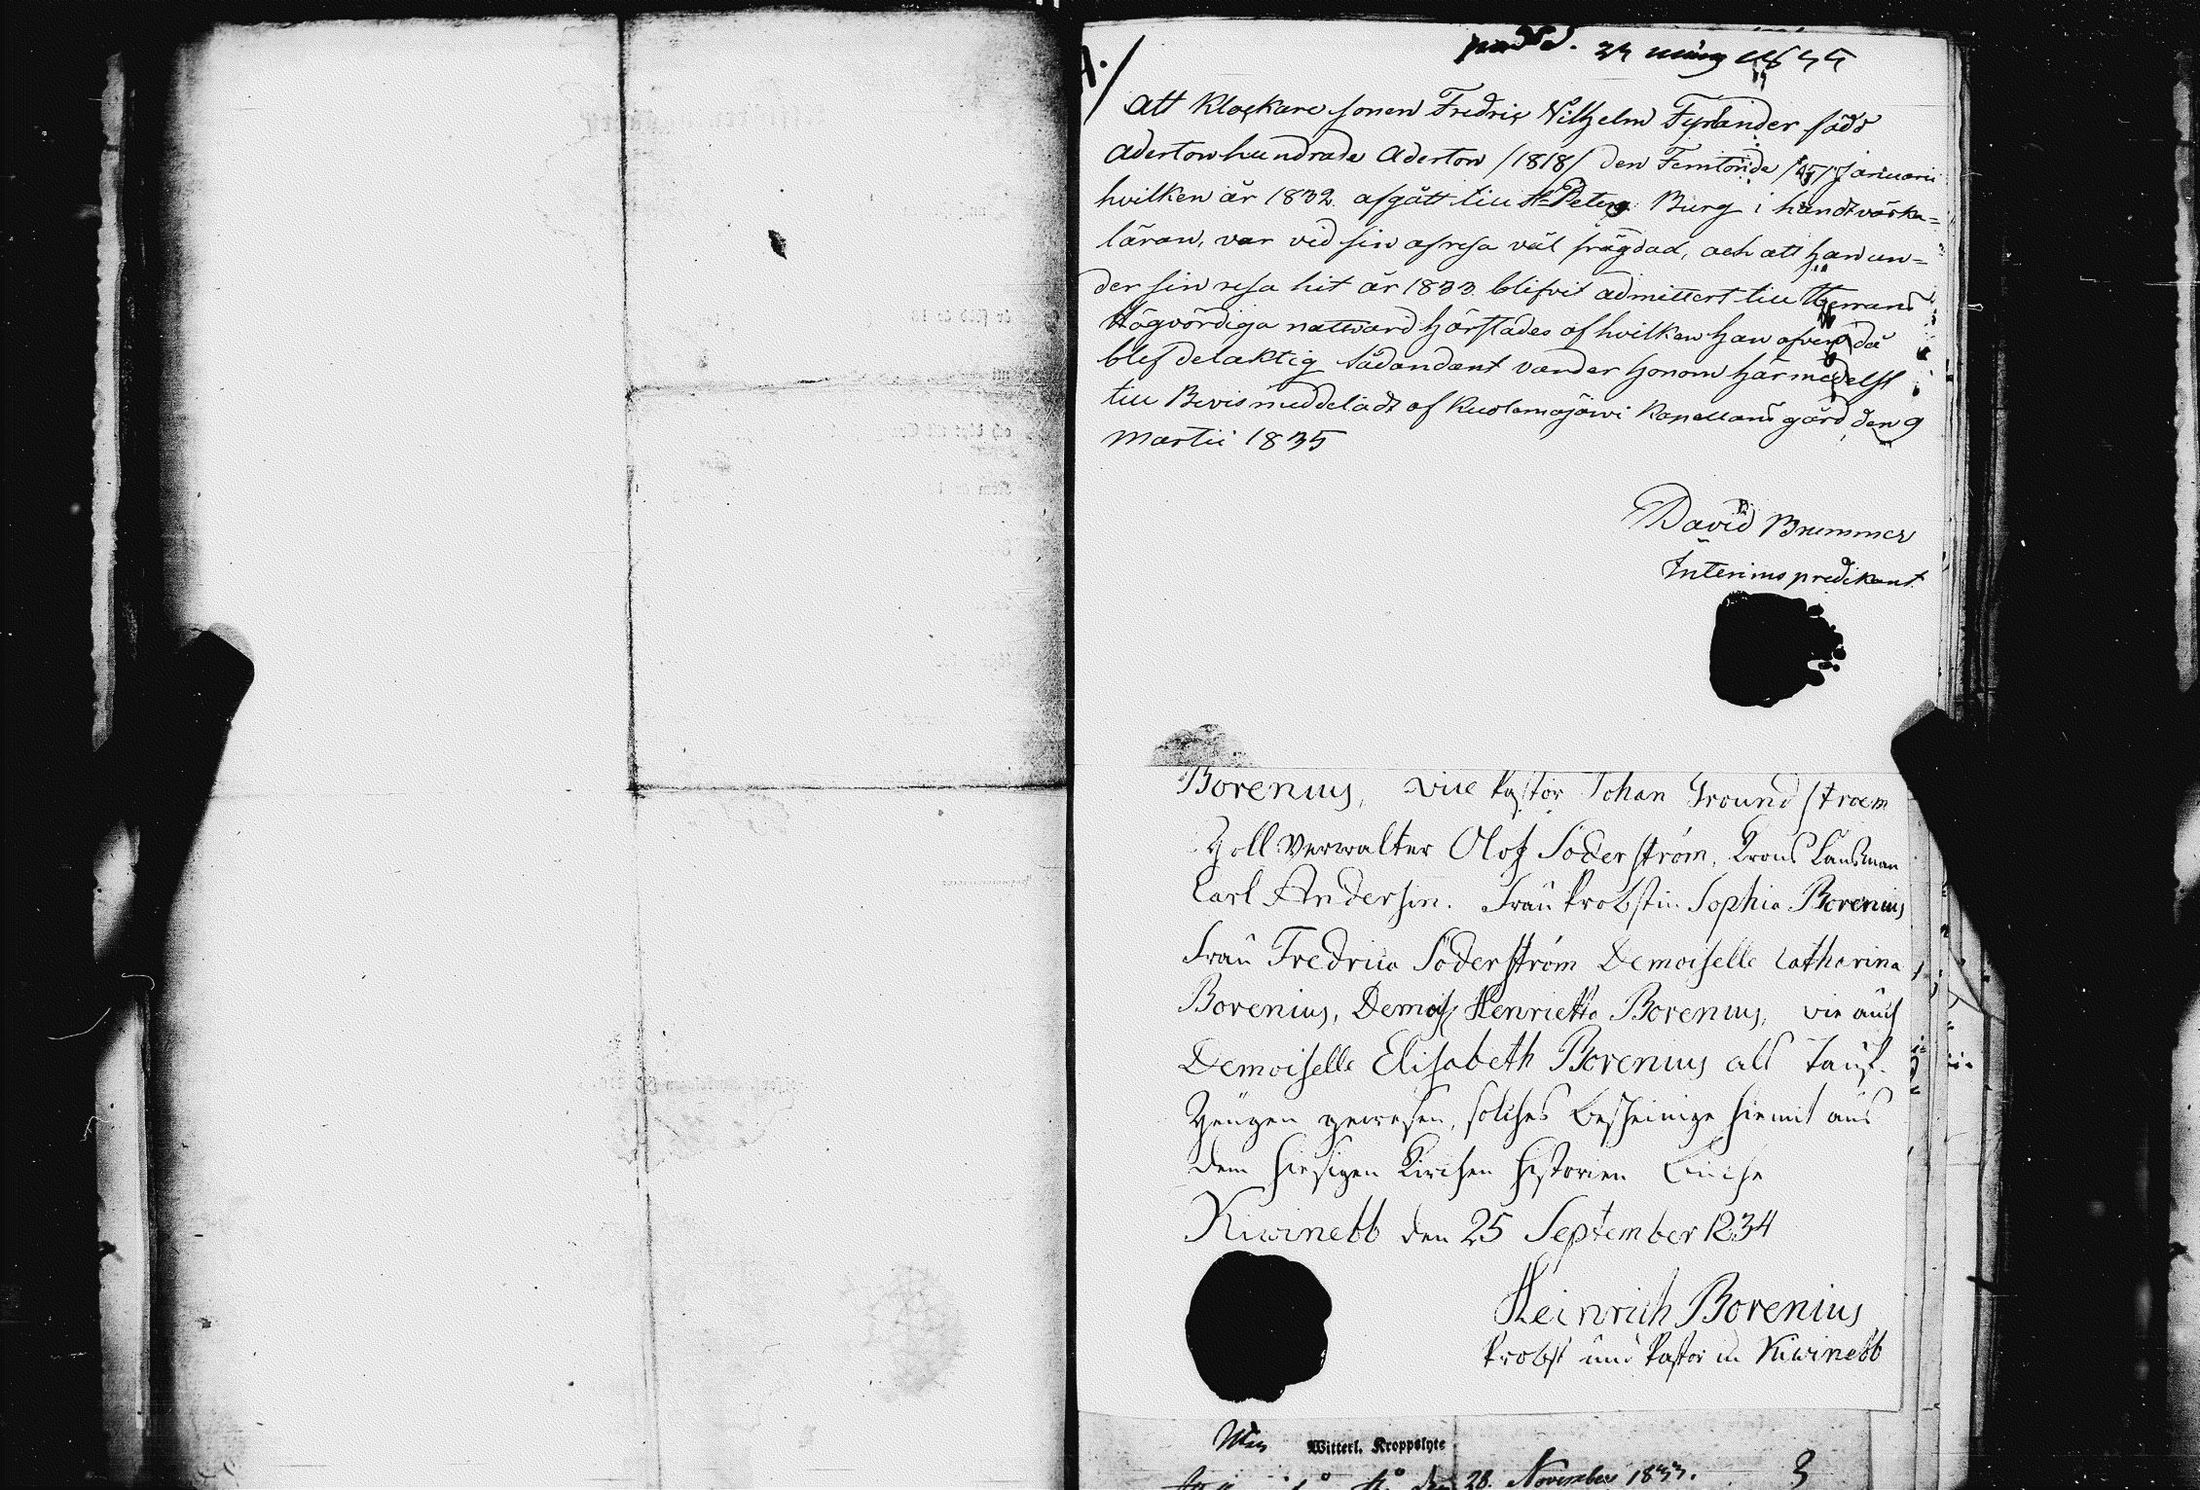 A./
prod. d. 27 März 1835
Att Klockare sonen Fredric Vilhelm Fyrlander född
Adertonhundrade Aderton /1818/ den Femtonde /15/ Januarii
hvilken år 1832 afgått till St Peters Burg i handtvärks=
läran, var vid sin afresa väl frägdad, och att han un=
der sin resa hit år 1833 blifvit admittert till Herrans
Högvördiga nattvard härstädes af hvilken han äfven då
blef delaktig sådandant varder honom härmedelst
till Bevis meddeladt af Kuolemajärvi Kapellans gård den 9
Martii 1835
David Brummer
Interims predikant
Borenius, Vice Pastor Johan Ground stroem
Zoll Verwalter Olof Söderström, Krons Länsman
Carl Andersin. Frau Probstin Sophia Borenius
Frau Fredrica Söderström Demoiselle Catharina
Borenius, Demois Henrietta Borenius, wie auch
Demoiselle Elisabeth Borenius als Tauf-
Zeugen gewesen, solches bescheinige hiemit aus
dem hiesigen Kirchen historien Buche
Kiwinebb den 25 September 1834
Heinrich Borenius
Probst und Pastor in Kiwinebb
Witterl. Kroppslyte
den 28. November 1833. 3